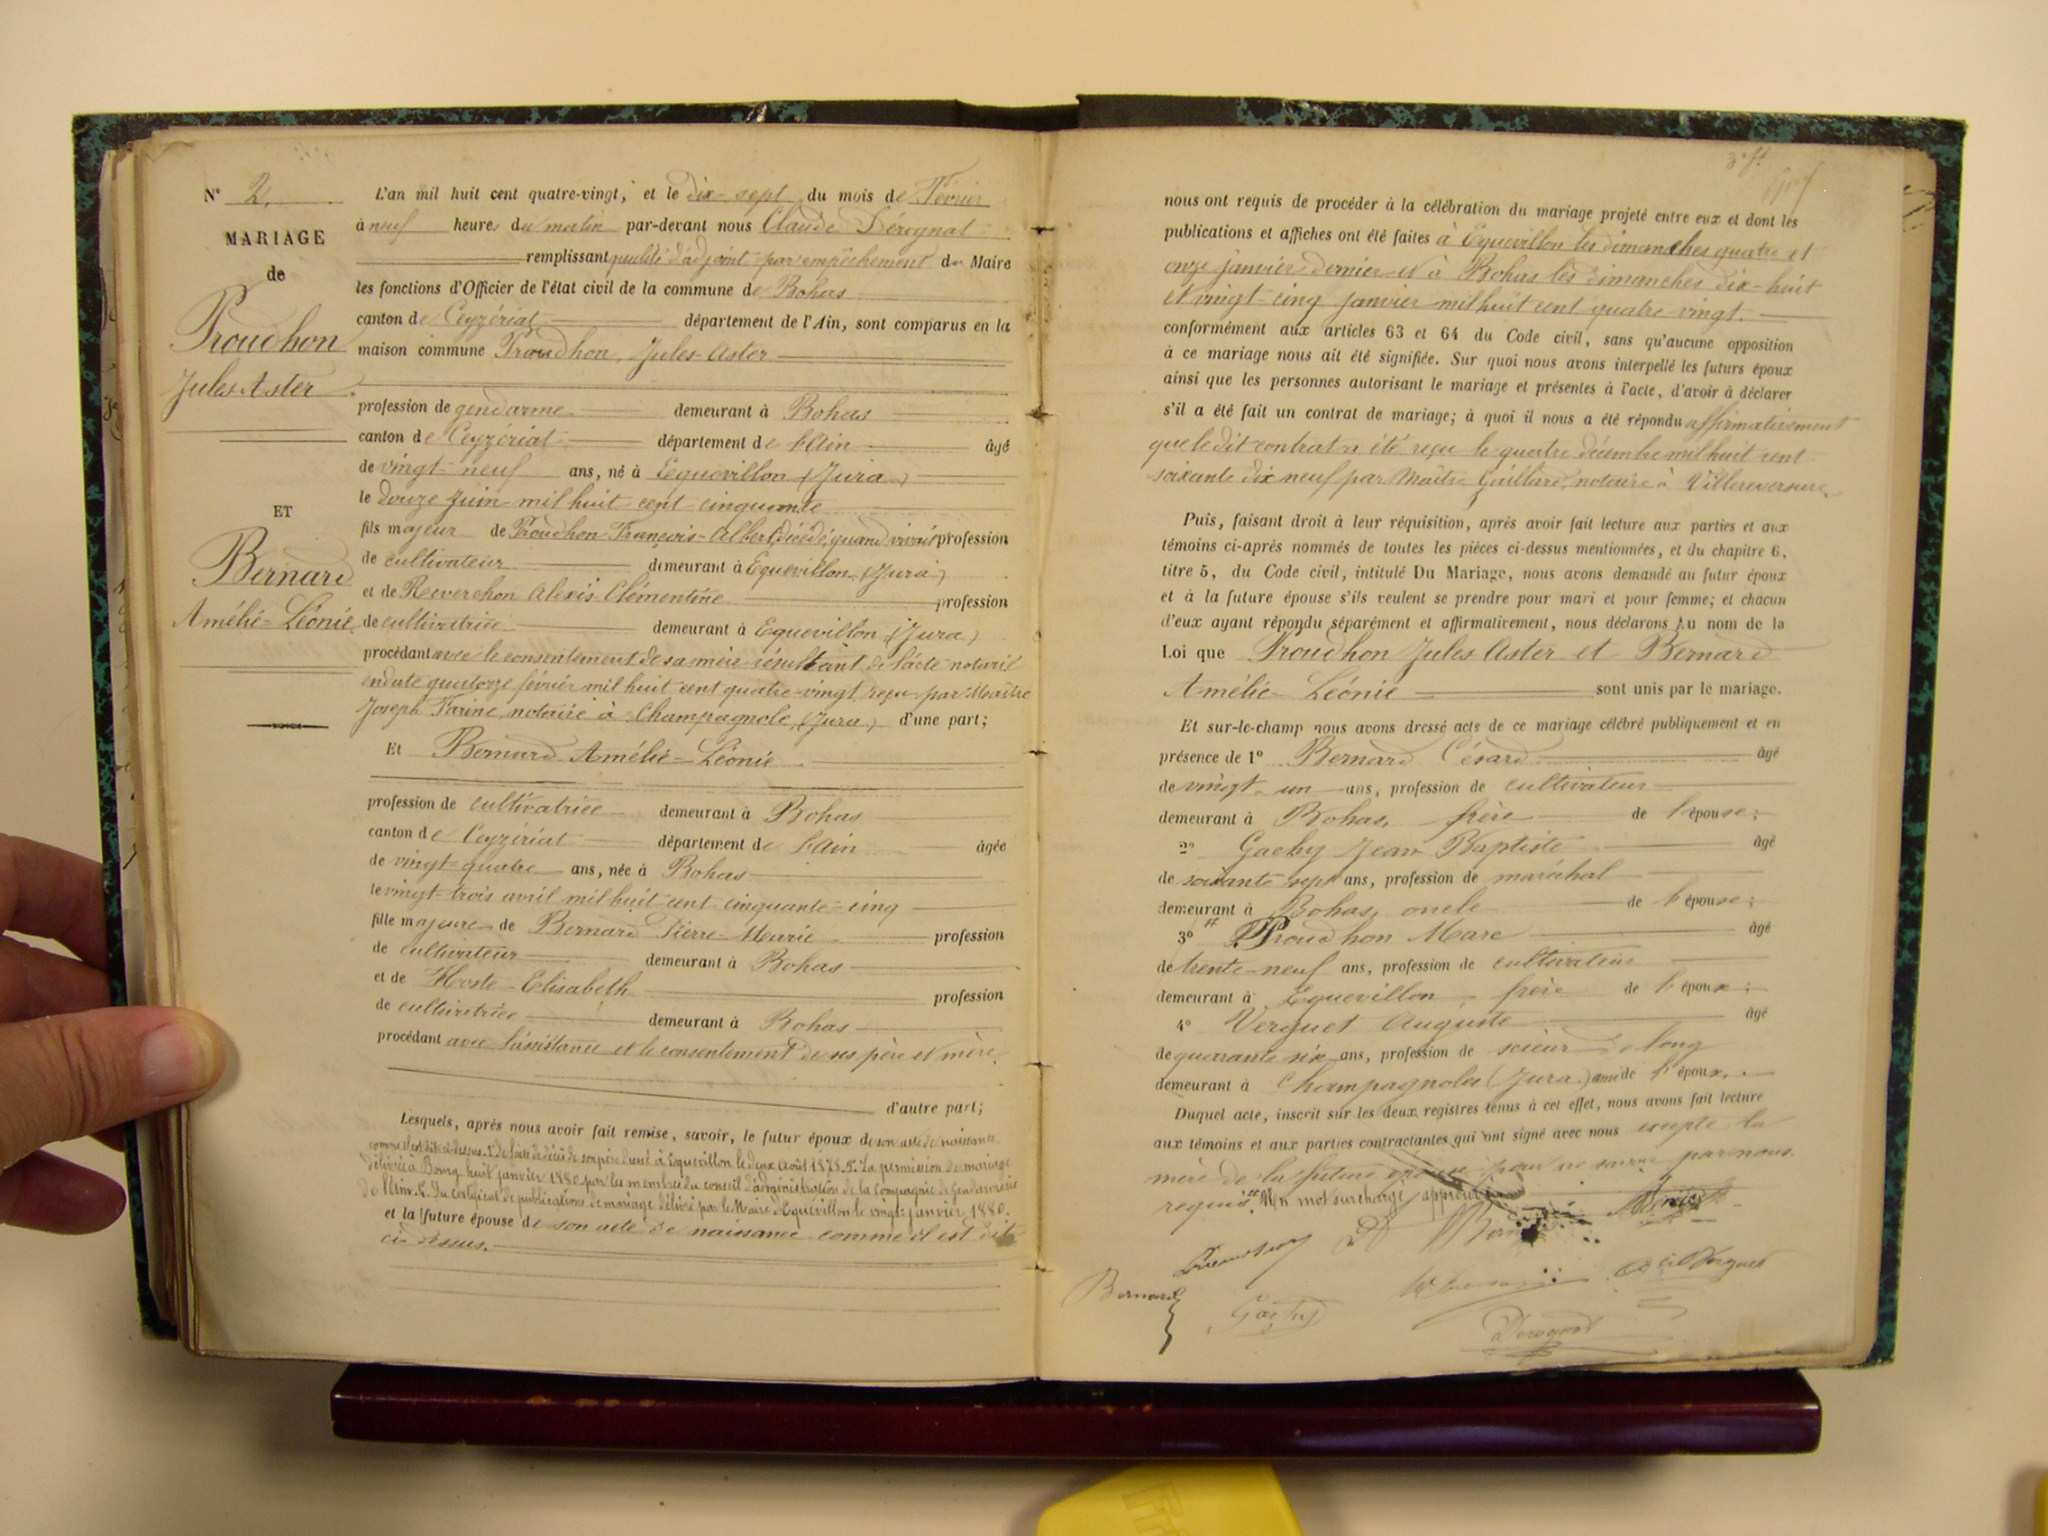 N° 2.
MARIAGE
de
Proudhon
Jules Aster
ET
Bernard
Amélie-Léonie
L'an mil huit cent quatre-vingt, et le dix-sept du mois de Février
à neuf heures du matin par-devant nous Claude Dérognat
remplissant qualité d'adjoint par empêchement du Maire
les fonctions d'Officier de l'état civil de la commune de Bohas
canton de Ceyzériat département de l'Ain, sont comparus en la
maison commune Proudhon, Jules-Aster
profession de gendarme demeurant à Bohas
canton de Ceyzériat département de l'Ain âgé
de vingt-neuf ans, né à Equevillon (Jura)
le douze juin mil huit cent cinquante
fils majeur de Proudhon François-Albert, décédé, quand vivait profession
de cultivateur demeurant à Equevillon (Jura)
et de Reverchon Alexis Clémentine profession
de cultivatrice demeurant à Equevillon (Jura)
procédant avec le consentement de sa mère résultant de l'acte notarié
en date quatorze février mil huit cent quatre-vingt reçu par Maître
Joseph Farine, notaire à Champagnole (Jura) d'une part;
Et Bernard Amélie-Léonie
profession de cultivatrice demeurant à Bohas
canton de Ceyzériat département de l'Ain âgée
de vingt-quatre ans, née à Bohas
le vingt-trois avril mil huit cent cinquante-cinq
fille majeure de Bernard Pierre-Marie profession
de cultivateur demeurant à Bohas
et de Hoste-Elisabeth profession
de cultivatrice demeurant à Bohas
procédant avec l'assistance et le consentement de ses père et mère.
d'autre part;
Lesquels, après nous avoir fait remise, savoir, le futur époux de son acte de naissance
comme il est dit ci-dessus. de l'acte de décès de son père dressé à Equevillon le deux Août 1878. La permission de mariage
délivrée à Bourg huit janvier 1880 par les membres du conseil d'administration de la Compagnie de Gendarmerie
de l'Ain. Du certificat de publications de mariage délivré par le Maire d'Equevillon le vingt janvier 1880.
et la future épouse de son acte de naissance comme il est dit
ci-dessus.
nous ont requis de procéder à la célébration du mariage projeté entre eux et dont les
publications et affiches ont été faites à Equevillon les dimanches quatre et
onze janvier dernier et à Bohas les dimanches dix-huit
et vingt-cinq janvier mil huit cent quatre-vingt.
conformément aux articles 63 et 64 du Code civil, sans qu'aucune opposition
à ce mariage nous ait été signifiée. Sur quoi nous avons interpellé les futurs époux
ainsi que les personnes autorisant le mariage et présentes à l'acte, d'avoir à déclarer
s'il a été fait un contrat de mariage; à quoi il nous a été répondu affirmativement
que le dit contrat a été reçu le quatre décembre mil huit cent
soixante dix neuf par Maître Gaillard, notaire à Villereversure
Puis, faisant droit à leur réquisition, après avoir fait lecture aux parties et aux
témoins ci-après nommés de toutes les pièces ci-dessus mentionnées, et du chapitre 6,
titre 5, du Code civil, intitulé Du Mariage, nous avons demandé au futur époux
et à la future épouse s'ils veulent se prendre pour mari et pour femme; et chacun
d'eux ayant répondu séparément et affirmativement, nous déclarons Au nom de la
Loi que Proudhon Jules Aster et Bernard
Amélie-Léonie sont unis par le mariage.
Et sur-le-champ nous avons dressé acte de ce mariage célébré publiquement et en
présence de 1° Bernard Césard âgé
de vingt-un ans, profession de cultivateur
demeurant à Bohas, frère de l'épouse;
2° Gachy Jean Baptiste âgé
de soixante sept ans, profession de maréchal
demeurant à Bohas, oncle de l'épouse;
3° Proudhon Marc âgé
de trente-neuf ans, profession de cultivateur
demeurant à Equevillon, frère de l'époux;
4° Verguet Auguste âgé
de quarante six ans, profession de scieur de long
demeurant à Champagnoles (Jura) ami de l'époux.
Duquel acte, inscrit sur les deux registres tenus à cet effet, nous avons fait lecture
aux témoins et aux parties contractantes qui ont signé avec nous excepté la
mère de la future épouse pour ne savoir par nous
requis. Un mot surchargé approuvé
Bernard
Gachy
Dérognat